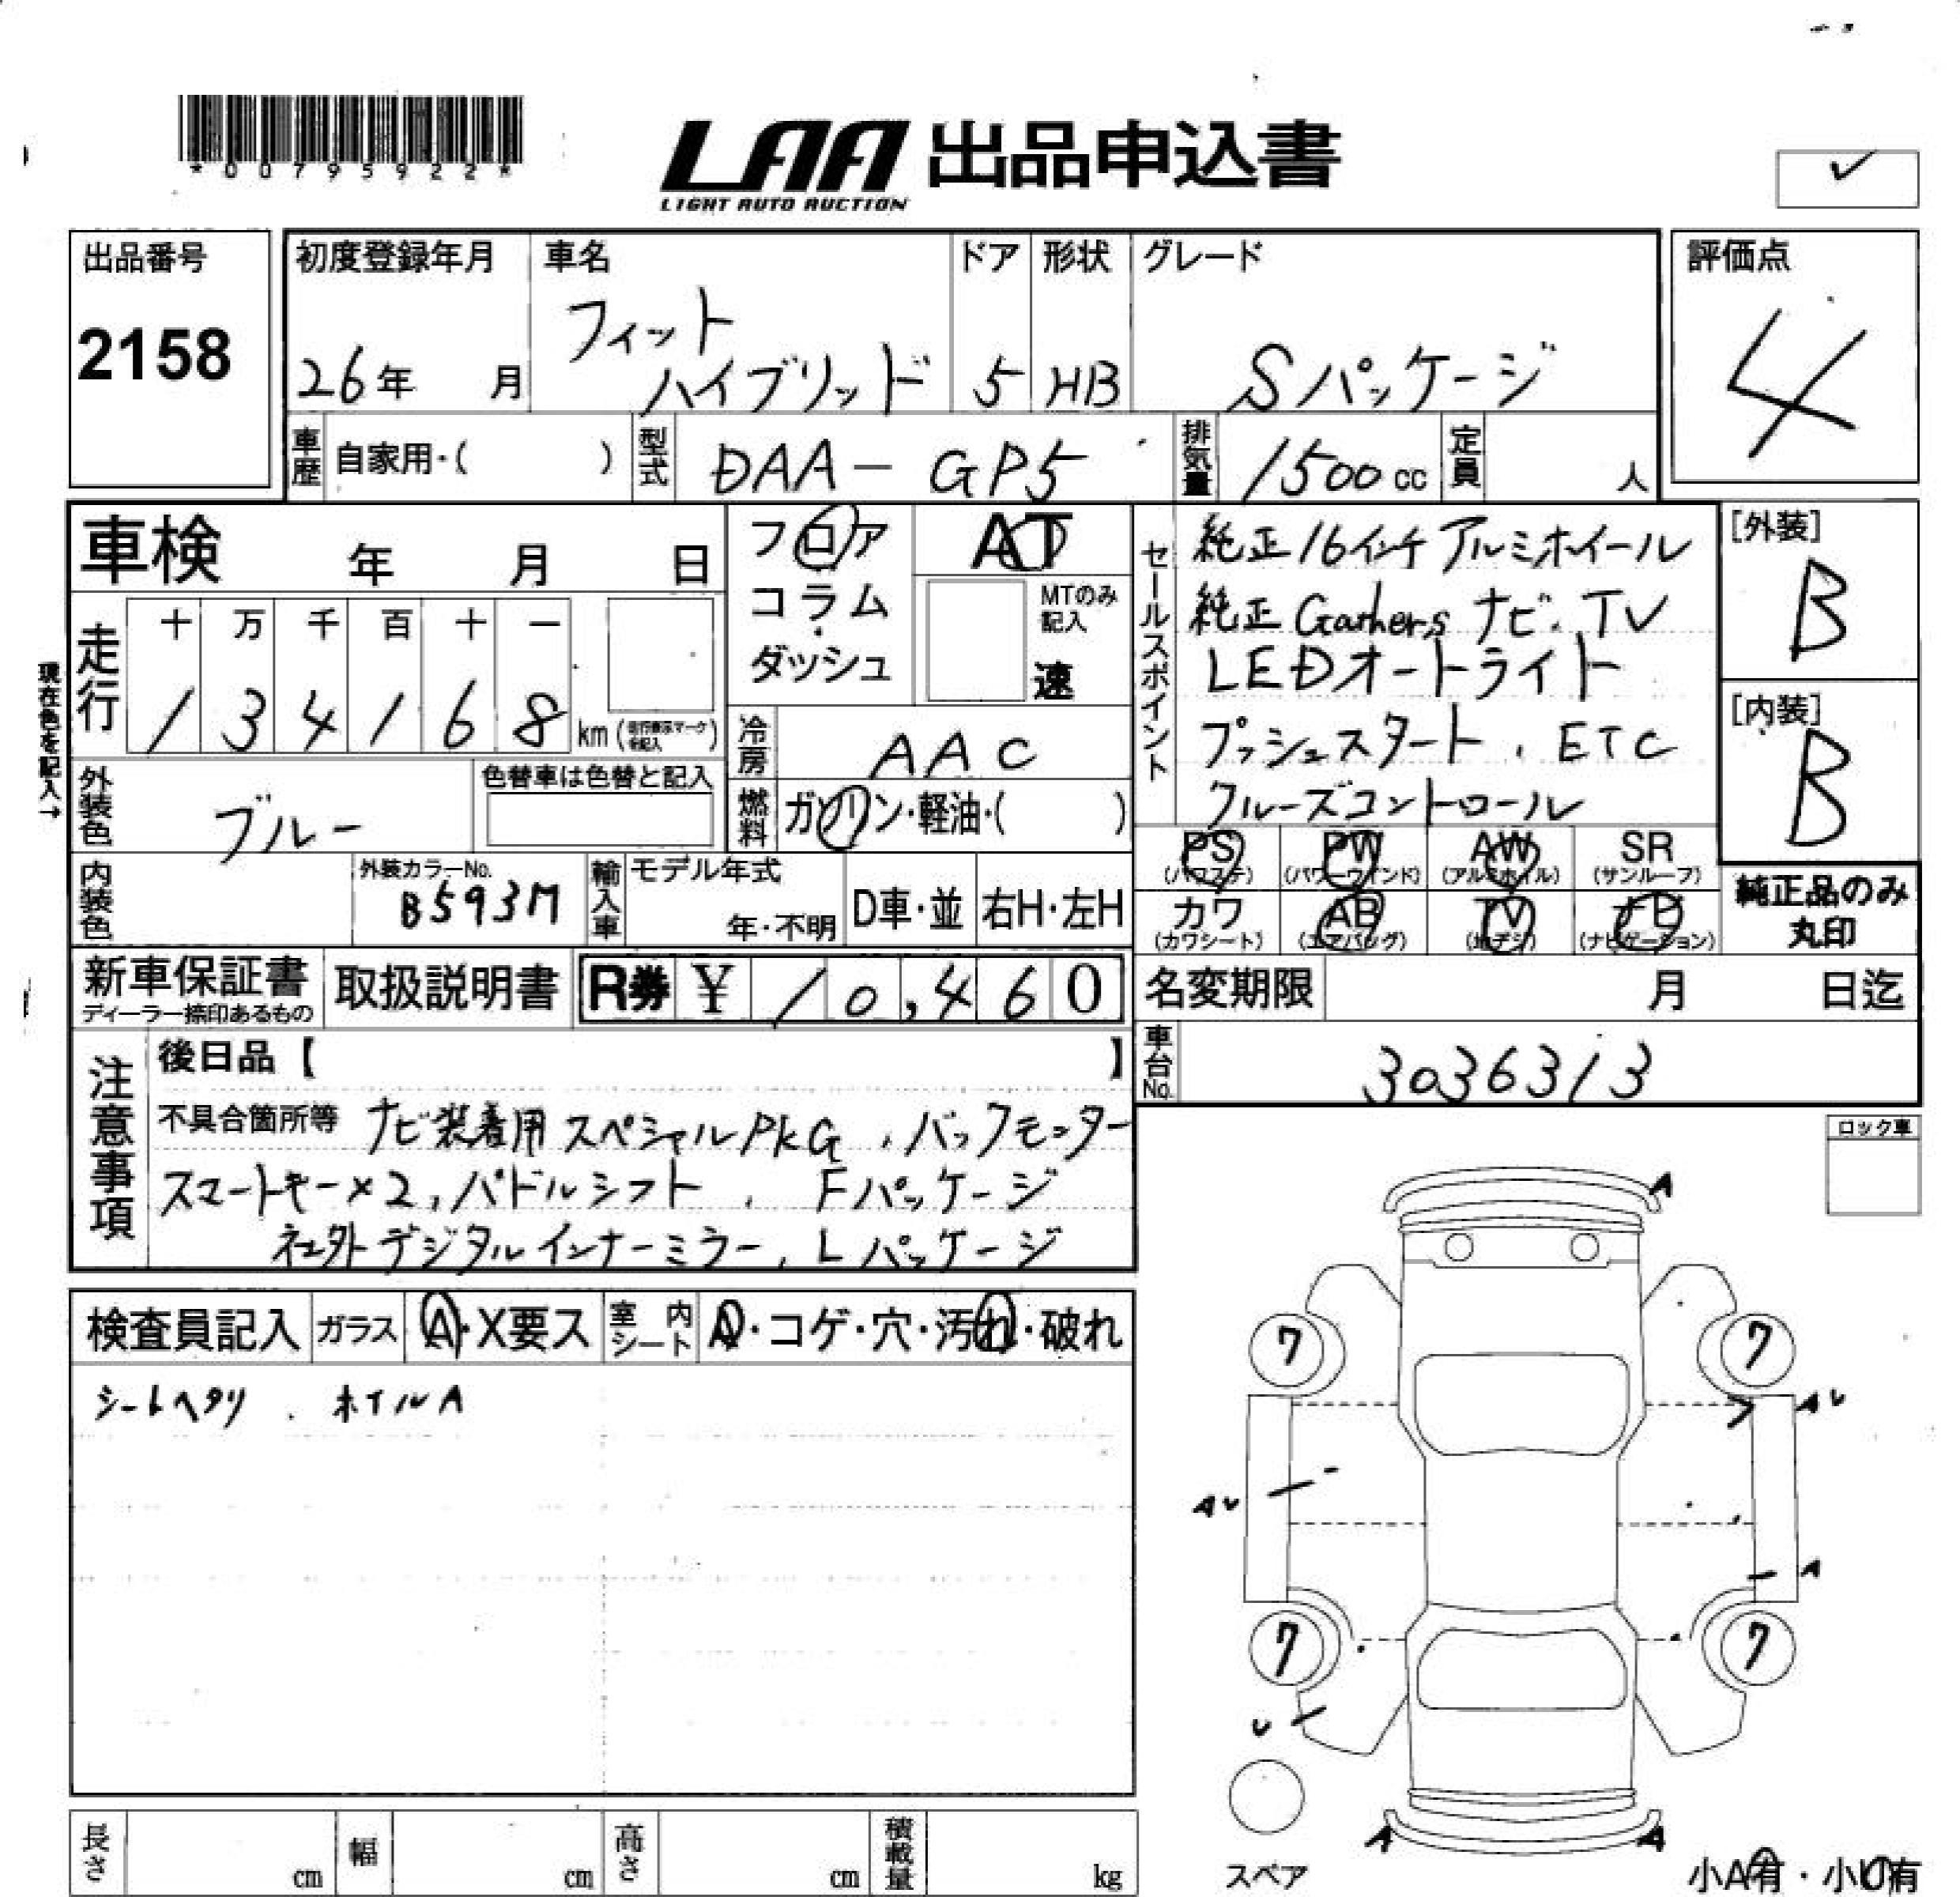 *00795922*
LAA 出品申込書
LIGHT AUTO AUCTION
✓
出品番号
2158
初度登録年月
26年 月
車名
フィット
ハイブリッド
ドア
5
形状
HB
グレード
Sパッケージ
評価点
4
車歴 自家用・( )
型式 DAA-GP5
排気量 1500cc
定員 人
車検 年 月 日
フロア
コラム
・
ダッシュ
AT
MTのみ
記入
速
セールスポイント
純正16インチアルミホイール
純正Gathersナビ.TV
LEDオートライト
プッシュスタート、ETC
クルーズコントロール
[外装]
B
[内装]
B
現在色を記入→
走行
十 万 千 百 十 一
1 3 4 1 6 8 km
冷房 AAC
外装色 ブルー
色替車は色替と記入
燃料 ガソリン・軽油・( )
内装色
外装カラーNo.
B593M
輸入車
モデル年式
年・不明
D車・並
右H・左H
PS PW AW SR
(パワステ) (パワーウインド) (アルミホイル) (サンルーフ)
カワ AB TV ナビ
(カワシート) (エアバッグ) (地デジ) (ナビゲーション)
純正品のみ
丸印
新車保証書
ディーラー捺印あるもの
取扱説明書
R券 ¥ 10,460
名変期限 月 日迄
車台No. 3036313
注意事項
後日品【 】
不具合箇所等 ナビ装着用スペシャルPKG、バックモニター
スマートキー×2、パドルシフト、Fパッケージ
社外デジタルインナーミラー、Lパッケージ
ロック車
検査員記入
ガラス A・X要ス
室内シート A・コゲ・穴・汚れ・破れ
シートヘタリ . ホイルA
A
7 7
AU
AU
A
7 7
U
A A
スペア
小A有・小U有
長さ cm
幅 cm
高さ cm
積載量 kg